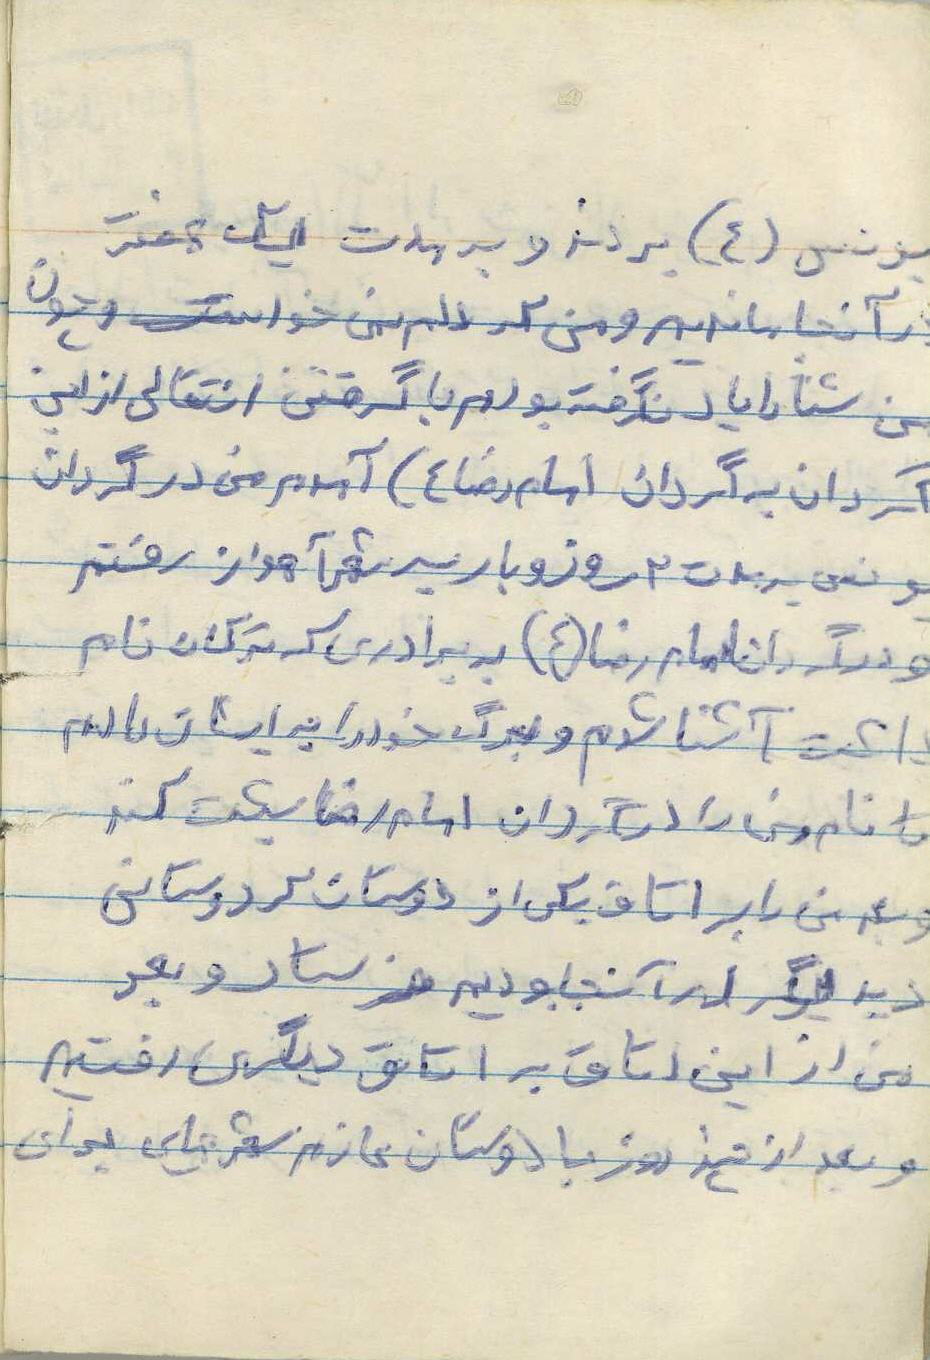 یونس (ع) بردند و به مدت یک هفته
در آنجا ماندیم و من که دلم می خواست و چون
من شنا را یاد نگرفته بودم با گرفتن انتقالی از این
گردان به گردان امام رضا ع) آمدم من در گردان
یونس به مدت ۲ روز و بار به شهر آهواز رفتم
و در گردان امام رضا (ع) به برادری که ترکان نام
داشت آشنا شدم و برگ خود را به ایشان دادم
تا نام من را در گردان امام رضا ثبت کند
و بعد من را به اتاق یکی از دوستان که دوستانی
دیگر در آنجا بودیم فرستاد و بعد
من از این اتاق به اتاق دیگری رفتیم
و بعد از چند روز با دوستان عازم شهرهای برای